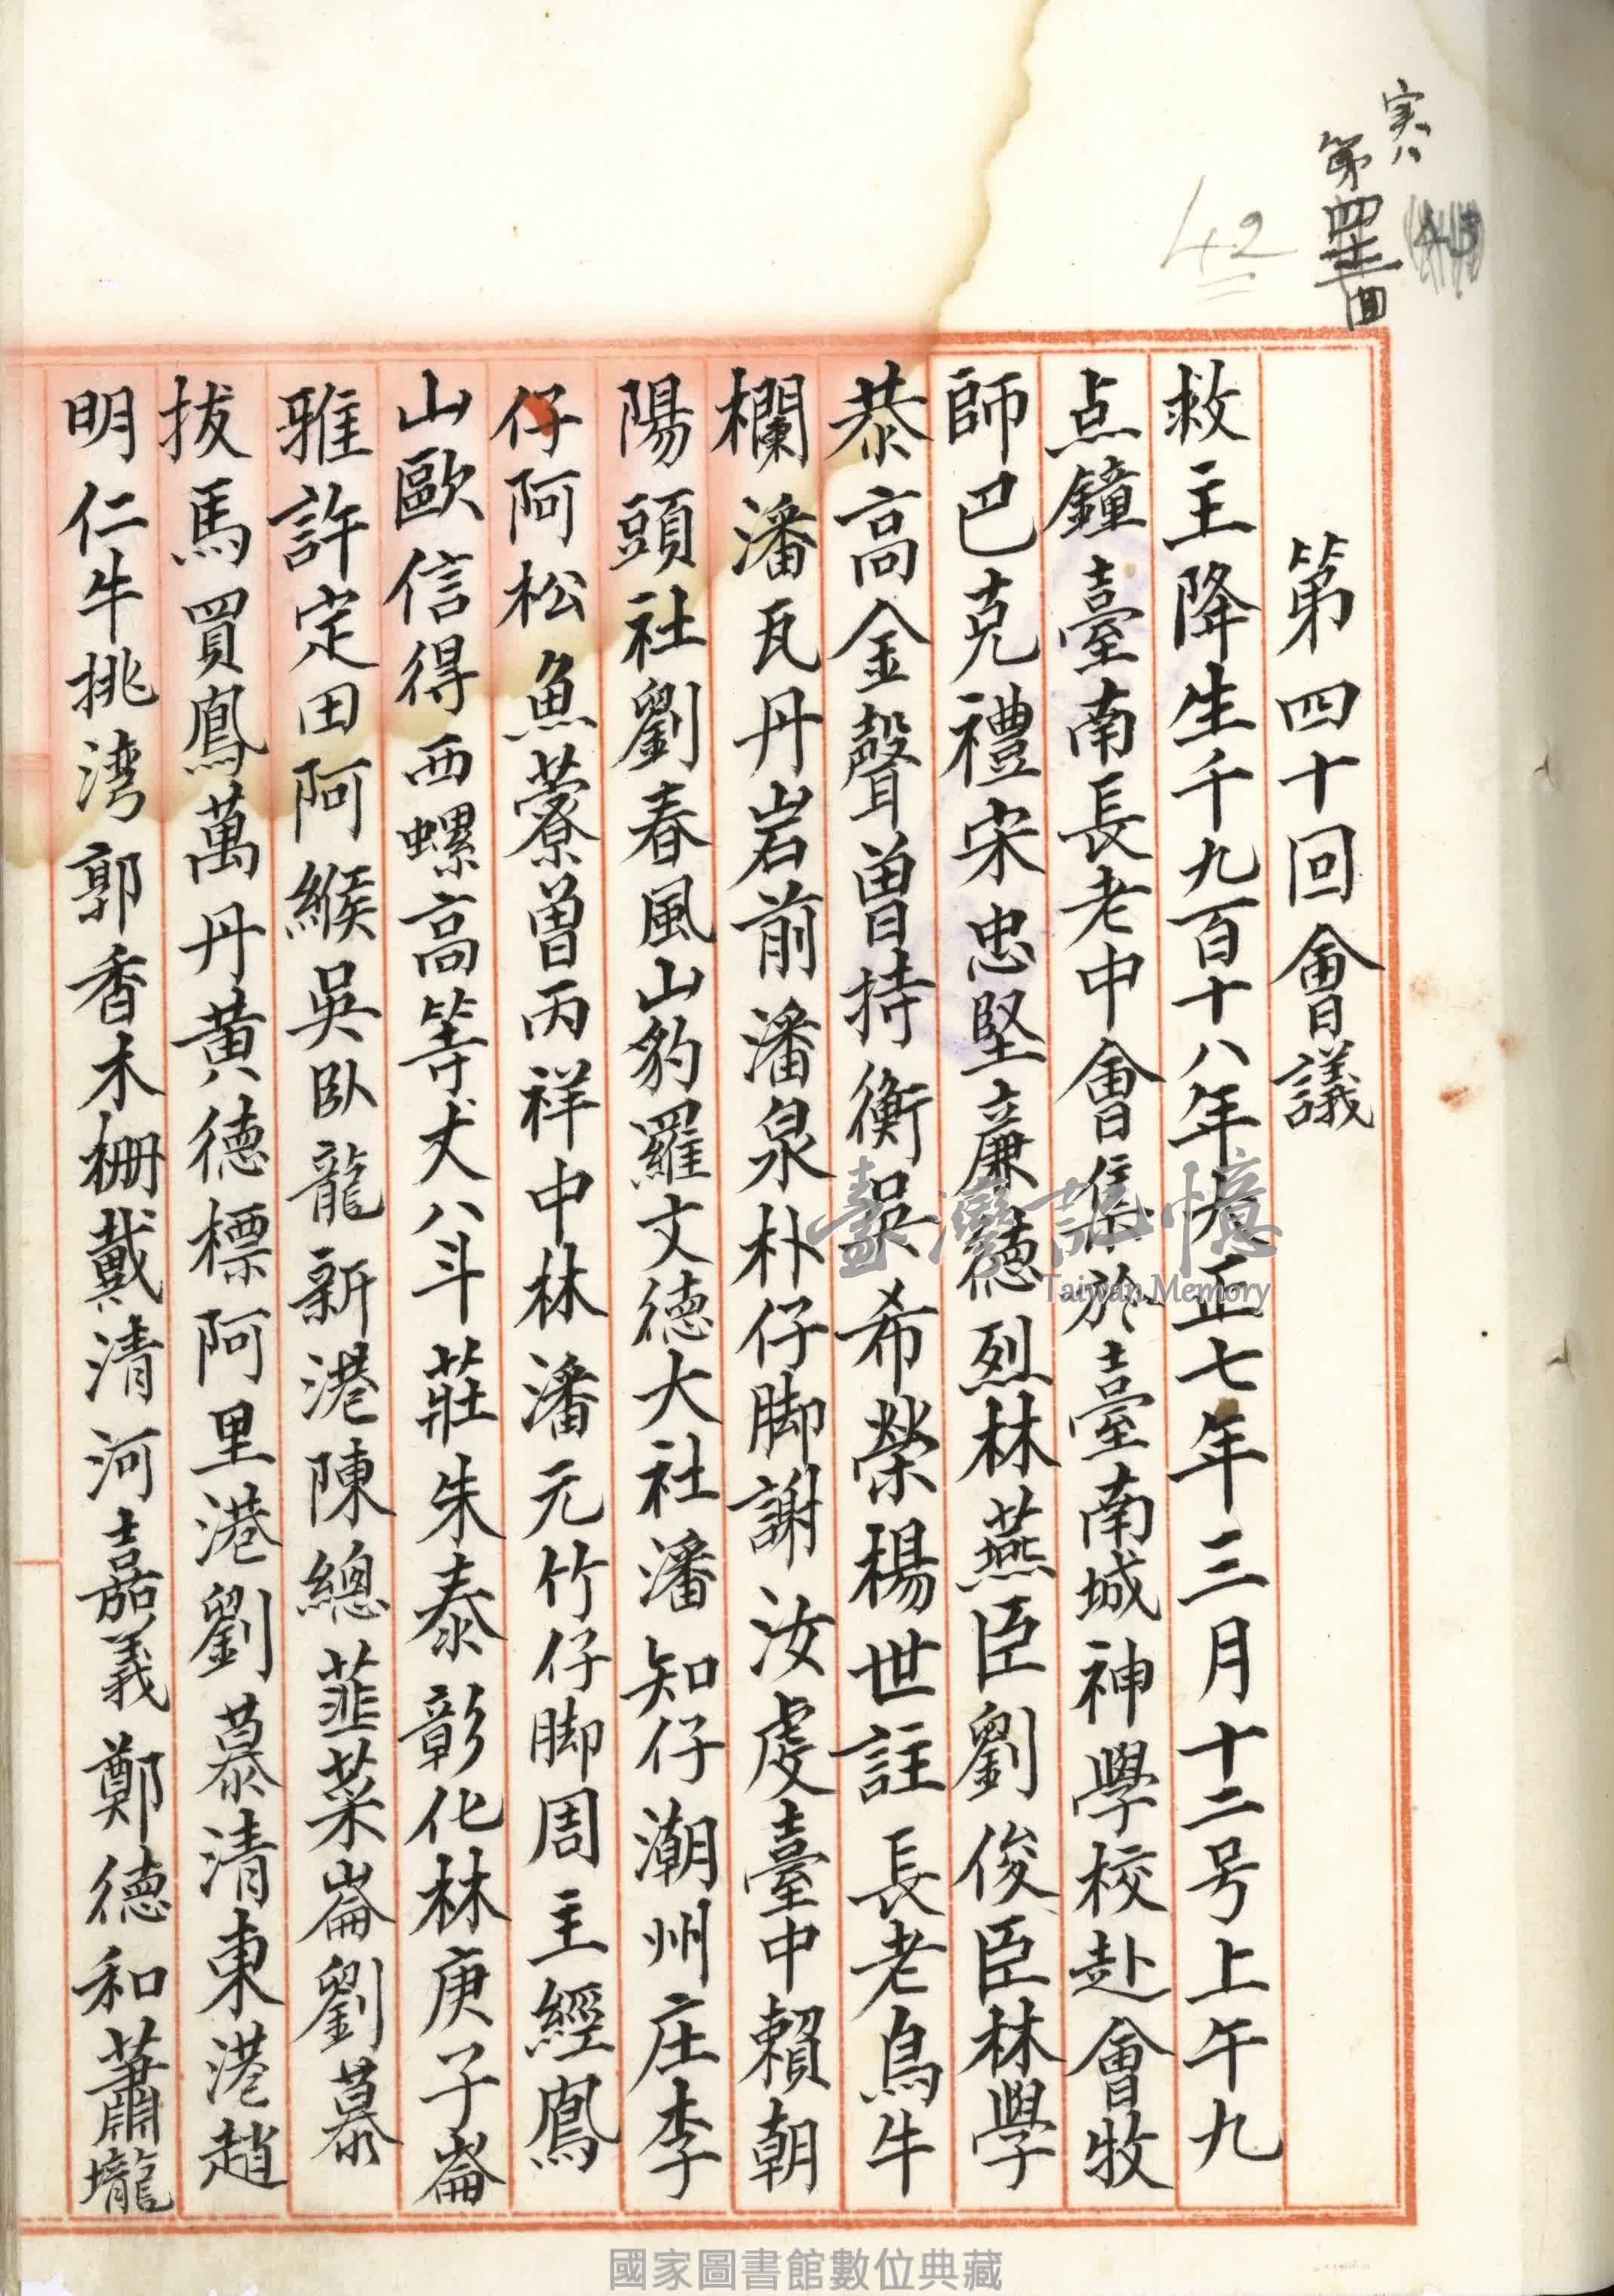 実ハ
第四十二回
42
第四十回會議
救主降生千九百十八年大正七年三月十二号上午九
点鐘臺南長老中會集於臺南城神學校赴會牧
師巴克禮宋忠堅廉德烈林燕臣劉俊臣林學
恭高金聲曾持衡吳希榮楊世註長老鳥牛
欄潘瓦丹岩前潘泉朴仔脚謝汝虔臺中賴朝
陽頭社劉春風山豹羅文德大社潘知仔潮州庄李
仔阿松魚藔曾丙祥中林潘元竹仔脚周主經鳳
山歐信得西螺高等犬八斗莊朱泰彰化林庚子崙
雅許定田阿緱吳臥龍新港陳總韮菜崙劉慕
拔馬買鳳萬丹黃德標阿里港劉慕清東港趙
明仁牛挑湾郭香木柵戴清河嘉義鄭德和蕭壠
臺灣記憶
Taiwan Memory
國家圖書館數位典藏